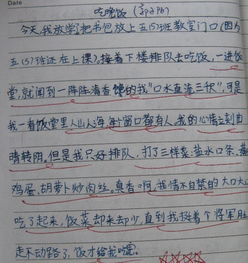 Date
吃晚饭
今天,我放学把书包放上五(5)班教室门口(因为
五(5)班还在上课),接着下楼排队去吃饭,一进饭
堂,就闻到一阵阵清香馋的我"口水直流三尺",可是
我一看饭堂里人山人海,每个窗口都有人,我的心情立刻由
晴转阴,但是我只好排队,打了三样菜:盐水口条、蒸
鸡蛋、胡萝卜炒肉丝,真香啊,我情不自禁的大口大口
吃了起来,饭菜却来却少,直到我挺着个将军肚
走不动路了,饭才给我吃完